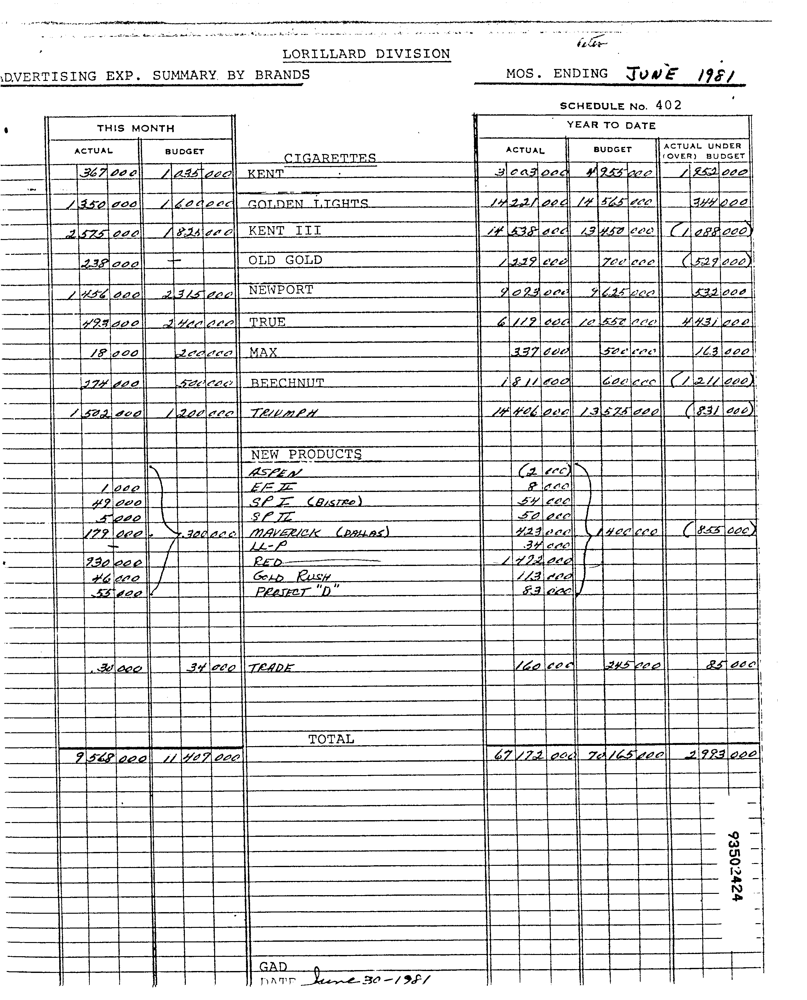 Peter
LORILLARD DIVISION
ADVERTISING EXP. SUMMARY BY BRANDS MOS. ENDING JUNE 1981
SCHEDULE No. 402
THIS MONTH YEAR TO DATE
ACTUAL BUDGET CIGARETTES ACTUAL BUDGET ACTUAL UNDER (OVER) BUDGET
367 000 1 035 000 KENT 3 003 000 4 955 000 1 952 000
1 350 000 1 600 000 GOLDEN LIGHTS 14 221 000 14 565 000 344 000
2 575 000 1 825 000 KENT III 14 538 000 13 450 000 (1 088 000)
238 000 — OLD GOLD 1 229 000 700 000 (529 000)
1 456 000 2 315 000 NEWPORT 9 093 000 9 625 000 532 000
493 000 2 400 000 TRUE 6 119 000 10 550 000 4 431 000
18 000 200 000 MAX 337 000 500 000 163 000
274 000 500 000 BEECHNUT 1 811 000 600 000 (1 211 000)
1 502 000 1 200 000 TRIUMPH 14 406 000 13 575 000 (831 000)
NEW PRODUCTS
ASPEN (2 000)
1 000 EF II 8 000
49 000 SP I (BISTRO) 54 000
5 000 SP II 50 000
179 000 300 000 MAVERICK (DALLAS) 423 000 1 400 000 (855 000)
— LL-P 34 000
930 000 RED 1 492 000
46 000 GOLD RUSH 113 000
55 000 PROJECT "D" 83 000
30 000 34 000 TRADE 160 000 245 000 85 000
TOTAL
9 568 000 11 409 000 67 172 000 70 165 000 2 993 000
93502424
GAD
DATE June 30-1981